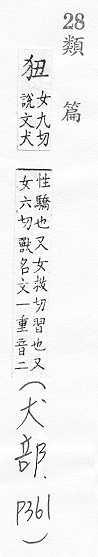 28
類
篇
狃
女九切
說文犬
性驕也又女救切習也又
女六切獸名文一重音二
(犬部.
p361)